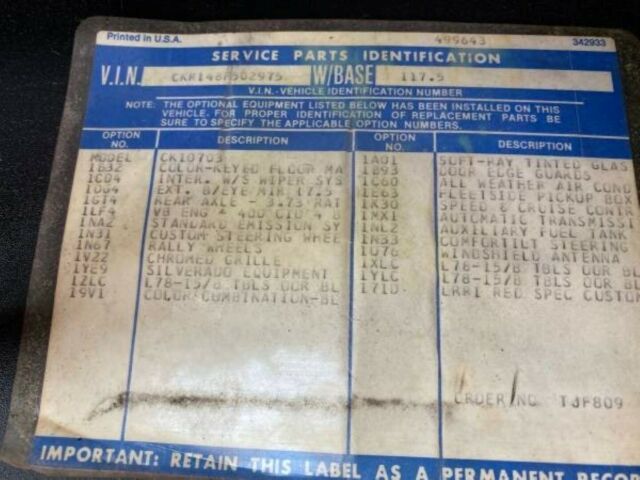 Printed in U.S.A. 499643 342933
SERVICE PARTS IDENTIFICATION
V.I.N. CKR148F502975 W/BASE 117.5
V.I.N.-VEHICLE IDENTIFICATION NUMBER
NOTE: THE OPTIONAL EQUIPMENT LISTED BELOW HAS BEEN INSTALLED ON THIS
VEHICLE. FOR PROPER IDENTIFICATION OF REPLACEMENT PARTS BE
SURE TO SPECIFY THE APPLICABLE OPTION NUMBERS.
OPTION NO. DESCRIPTION OPTION NO. DESCRIPTION
MODEL CK10703 1A01 SOFT-RAY TINTED GLAS
1B32 COLOR-KEYED FLOOR MA 1B93 DOOR EDGE GUARDS
1CD4 INTER. W/S WIPER SYS 1C60 ALL WEATHER AIR COND
EXT. B/EYE MIR (7.5 1E63 FLEETSIDE PICKUP BOX
1GT4 REAR AXLE - 3.73 RAT 1K30 SPEED & CRUISE CONTR
1LF4 V8 ENG * 400 CID 4 B 1MX1 AUTOMATIC TRANSMISSI
1NA2 STANDARD EMISSION SY 1NL2 AUXILIARY FUEL TANK
1N31 CUSTOM STEERING WHEE 1N33 COMFORTILT STEERING
1N67 RALLY WHEELS 1U76 WINDSHIELD ANTENNA
1V22 CHROMED GRILLE 1XLC L78-15/B TBLS OOR BL
1YE9 SILVERADO EQUIPMENT 1YLC L78-15/B TBLS OOR BL
1ZLC L78-15/B TBLS OOR BL 171D RED SPEC CUSTOM
19V1 COLOR COMBINATION-BL
ORDER NO TJF809
IMPORTANT: RETAIN THIS LABEL AS A PERMANENT RECOR